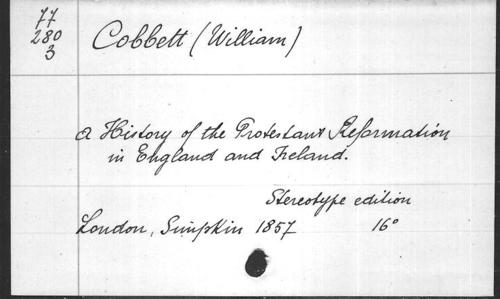 77
280
3
Cobbett (William)
a History of the Protestant Reformation
in England and Ireland.
Stereotype edition
London, Simpkin 1857 16°